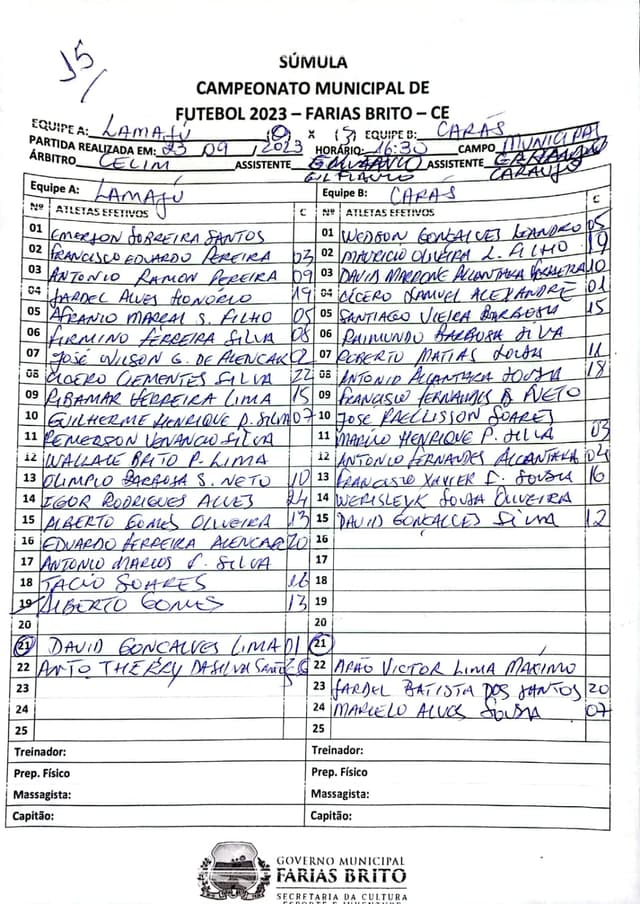 J5
SÚMULA
CAMPEONATO MUNICIPAL DE
FUTEBOL 2023 – FARIAS BRITO – CE
EQUIPE A: LAMAJÚ X EQUIPE B: CARÁS
PARTIDA REALIZADA EM: 23 / 09 / 2023 HORÁRIO: 16:30 CAMPO MUNICIPAL
ÁRBITRO CELIM ASSISTENTE ASSISTENTE
GIL FLAVIO CARAUJO
Equipe A: LAMAJÚ Equipe B: CARÁS
Nº ATLETAS EFETIVOS C Nº ATLETAS EFETIVOS C
01 EMERSON FERREIRA SANTOS 01 WEDSON GONÇALVES LEANDRO 05
02 FRANCISCO EDUARDO PEREIRA 03 02 MAURICIO OLIVEIRA L. FILHO 19
03 ANTONIO RAMON PEREIRA 09 03 DAVID MARRONE ALCANTARA 10
04 JARDEL ALVES HONORIO 19 04 CÍCERO SAMUEL ALEXANDRE 01
05 AFRANIO MARRAL S. FILHO 05 05 SANTIAGO VIEIRA BARBOSA 15
06 FIRMINO FERREIRA SILVA 08 06 RAIMUNDO BARBOSA SILVA
07 JOSÉ WILSON G. DE ALENCAR 07 ROBERTO MATIAS SOUSA 11
08 CICERO CLEMENTES SILVA 22 08 ANTONIO ALCANTARA SOUSA 18
09 RIBAMAR FERREIRA LIMA 15 09 FRANCISCO FERNANDES B NETO
10 GUILHERME HENRIQUE D. SILVA 07 10 JOSE RAELLISSON SOARES
11 REMERSON VENANCIO SILVA 11 MARINO HENRIQUE P. SILVA 03
12 WALLACE BRITO P. LIMA 12 ANTONIO FERNANDES ALCANTARA 04
13 OLIMPIO BARBOSA S. NETO 10 13 FRANCISCO XAVIER SOUSA 16
14 IGOR RODRIGUES ALVES 24 14 WERISLEYK SOUSA OLIVEIRA
15 ALBERTO GOMES OLIVEIRA 13 15 DAVID GONCALCES SILVA 12
16 EDUARDO FERREIRA ALENCAR 20 16
17 ANTONIO MARCOS SILVA 17
18 TACIO SOARES 16 18
19 ALBERTO GOMES 13 19
20 20
21 DAVID GONCALVES LIMA 01 21
22 ANTO THERRY DA SILVA SANT 22 ARÃO VICTOR LIMA MAXIMO
23 23 JARDEL BATISTA DOS SANTOS 20
24 24 MARCELO ALVES SOUSA 07
25 25
Treinador: Treinador:
Prep. Físico Prep. Físico
Massagista: Massagista:
Capitão: Capitão:
GOVERNO MUNICIPAL
FARIAS BRITO
SECRETARIA DA CULTURA
ESPORTE E JUVENTUDE